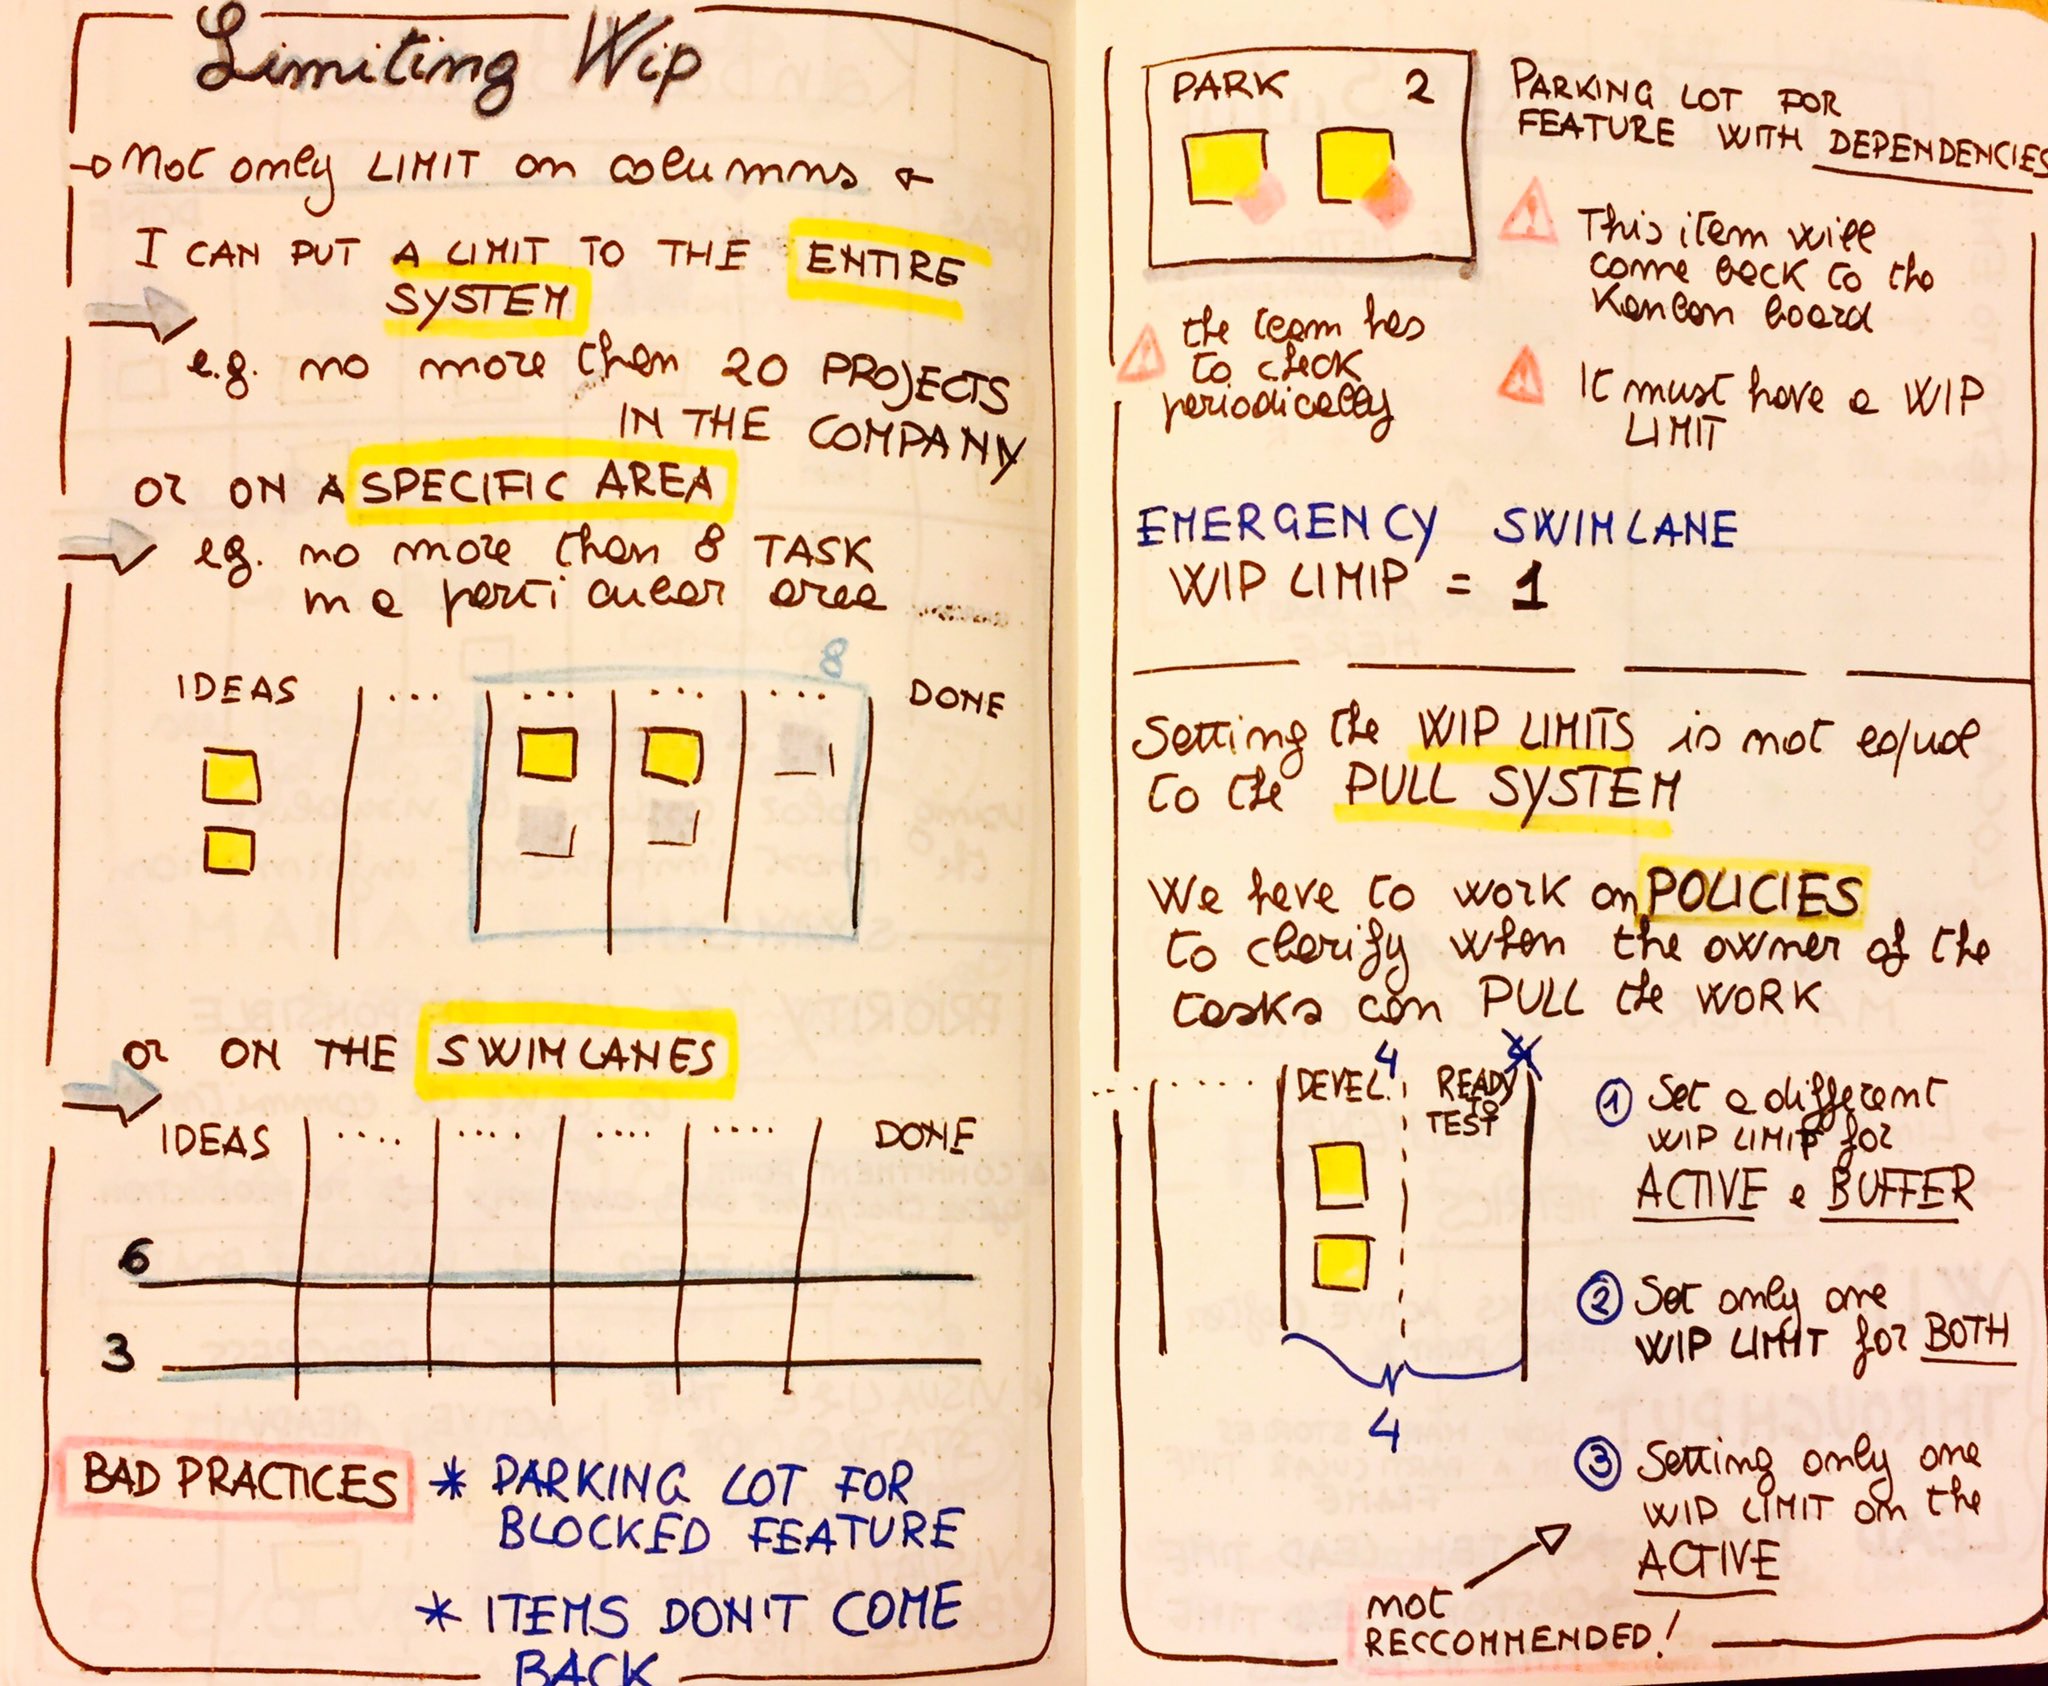 Limiting Wip
Not only LIMIT on columns
I CAN PUT A LIMIT TO THE ENTIRE
SYSTEM
e.g. no more than 20 PROJECTS
IN THE COMPANY
or ON A SPECIFIC AREA
eg. no more than 8 TASK
in a particular area
8
IDEAS ... ... ... ... DONE
or ON THE SWIMLANES
IDEAS .... .... .... .... DONE
6
3
BAD PRACTICES * PARKING LOT FOR
BLOCKED FEATURE
* ITEMS DON'T COME
BACK
PARK 2
PARKING LOT FOR
FEATURE WITH DEPENDENCIES
This item will
come back to the
Kanban board
the team has
to check
periodically
It must have a WIP
LIMIT
EMERGENCY SWIMLANE
WIP LIMIP = 1
Setting the WIP LIMITS is not equal
to the PULL SYSTEM
We have to work on POLICIES
to clarify when the owner of the
tasks can PULL the WORK
4
DEVEL. READY
TO
TEST
4
1 Set a different
WIP LIMIP for
ACTIVE e BUFFER
2 Set only one
WIP LIMIT for BOTH
3 Setting only one
WIP LIMIT on the
ACTIVE
not
RECCOMMENDED!